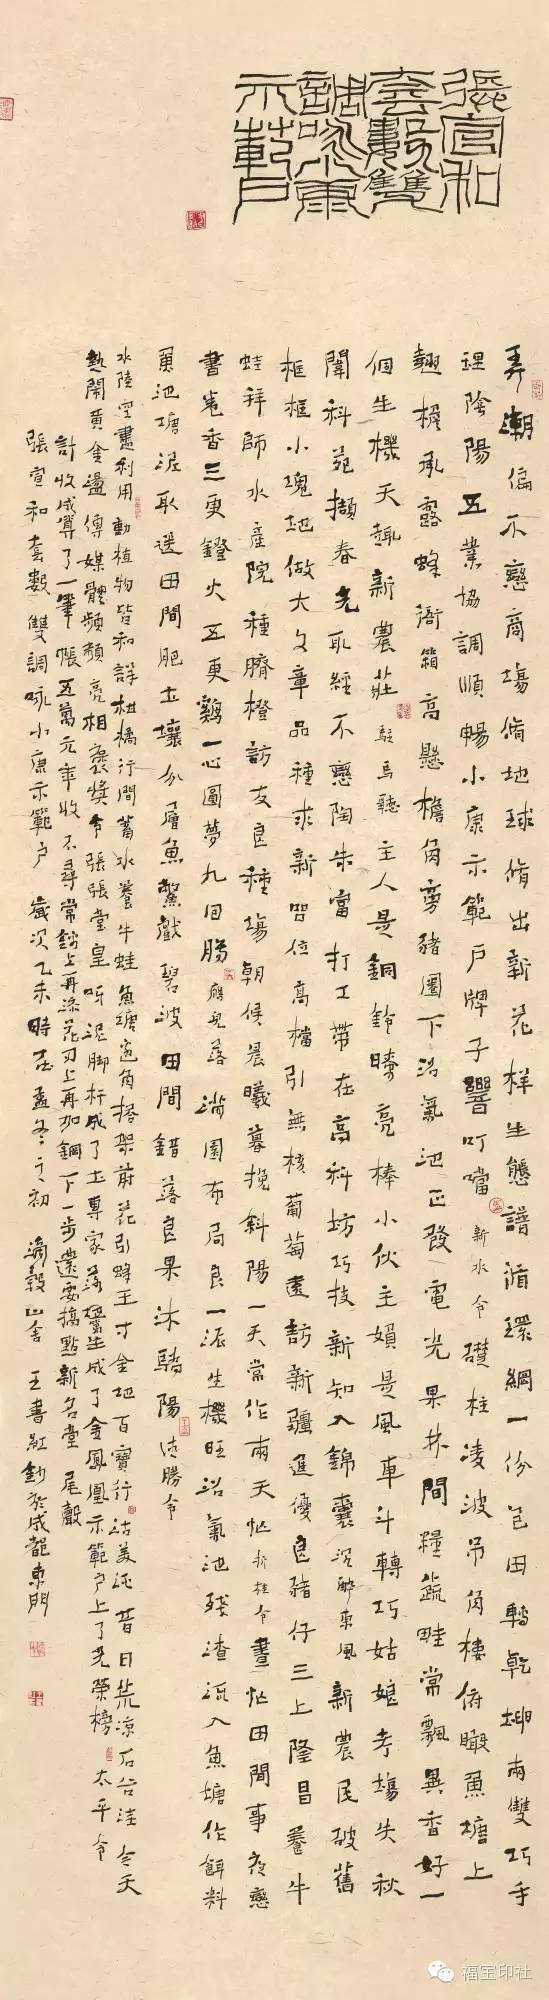 張宣和
套數雙
調咏小康
示範戶
弄潮偏不戀商場脩地球脩出新花樣生態譜循環網一份包田轉乾坤兩雙巧手
理陰陽五業協調順暢小康示範戶牌子響叮噹新水令礎柱凌波吊角樓俯瞰魚塘上
翹檐承露蜂衙箱高懸檐角旁豬圈下沼氣池正發電光果林間糧蔬畦常飄異香好一
個生機天趣新農莊駐馬聽主人是銅鈴嗓亮棒小伙主婦是風車斗轉巧姑娘考場失秋
闈科苑擷春光取經不戀陶朱富打工帶在高科坊巧技新知入錦囊沉醉東風新農民破舊
框框小塊地做大文章品種求新咱位高檔引無核葡萄遠訪新疆進優良豬仔三上隆昌養牛
蛙拜師水產院種臍橙訪友良種場朝候晨曦暮挽斜陽一天當作兩天忙折桂令晝忙田間事夜戀
書卷香三更鐙火五更雞一心圓夢九回腸雁兒落滿園布局良一派生機旺沼氣池殘渣流入魚塘作餌料
魚池塘泥取送田間肥土壤分層魚驚獻碧波田間錯落良果沐驕陽得勝令
水陸空盡利用動植物皆和諧柑橘行間蓄水養牛蛙魚塘邊角搭架葡花引蜂王寸金地百寶行沽美酒昔日荒凉石谷洼今天
熱鬧黃金邊傳媒體頻頻亮相褒獎令張張堂皇呀泥腳杆成了土專家落礓生成了金鳳凰示範戶上了光榮榜太平令
計收成算了一筆帳五萬元年收不尋常錦上再添花刃上再加鋼下一步還要搞點新名堂尾聲
張宣和套數雙調咏小康示範戶歲次乙未時在孟冬之初滴穀山舍王書紅鈔於成都東門
福宝印社